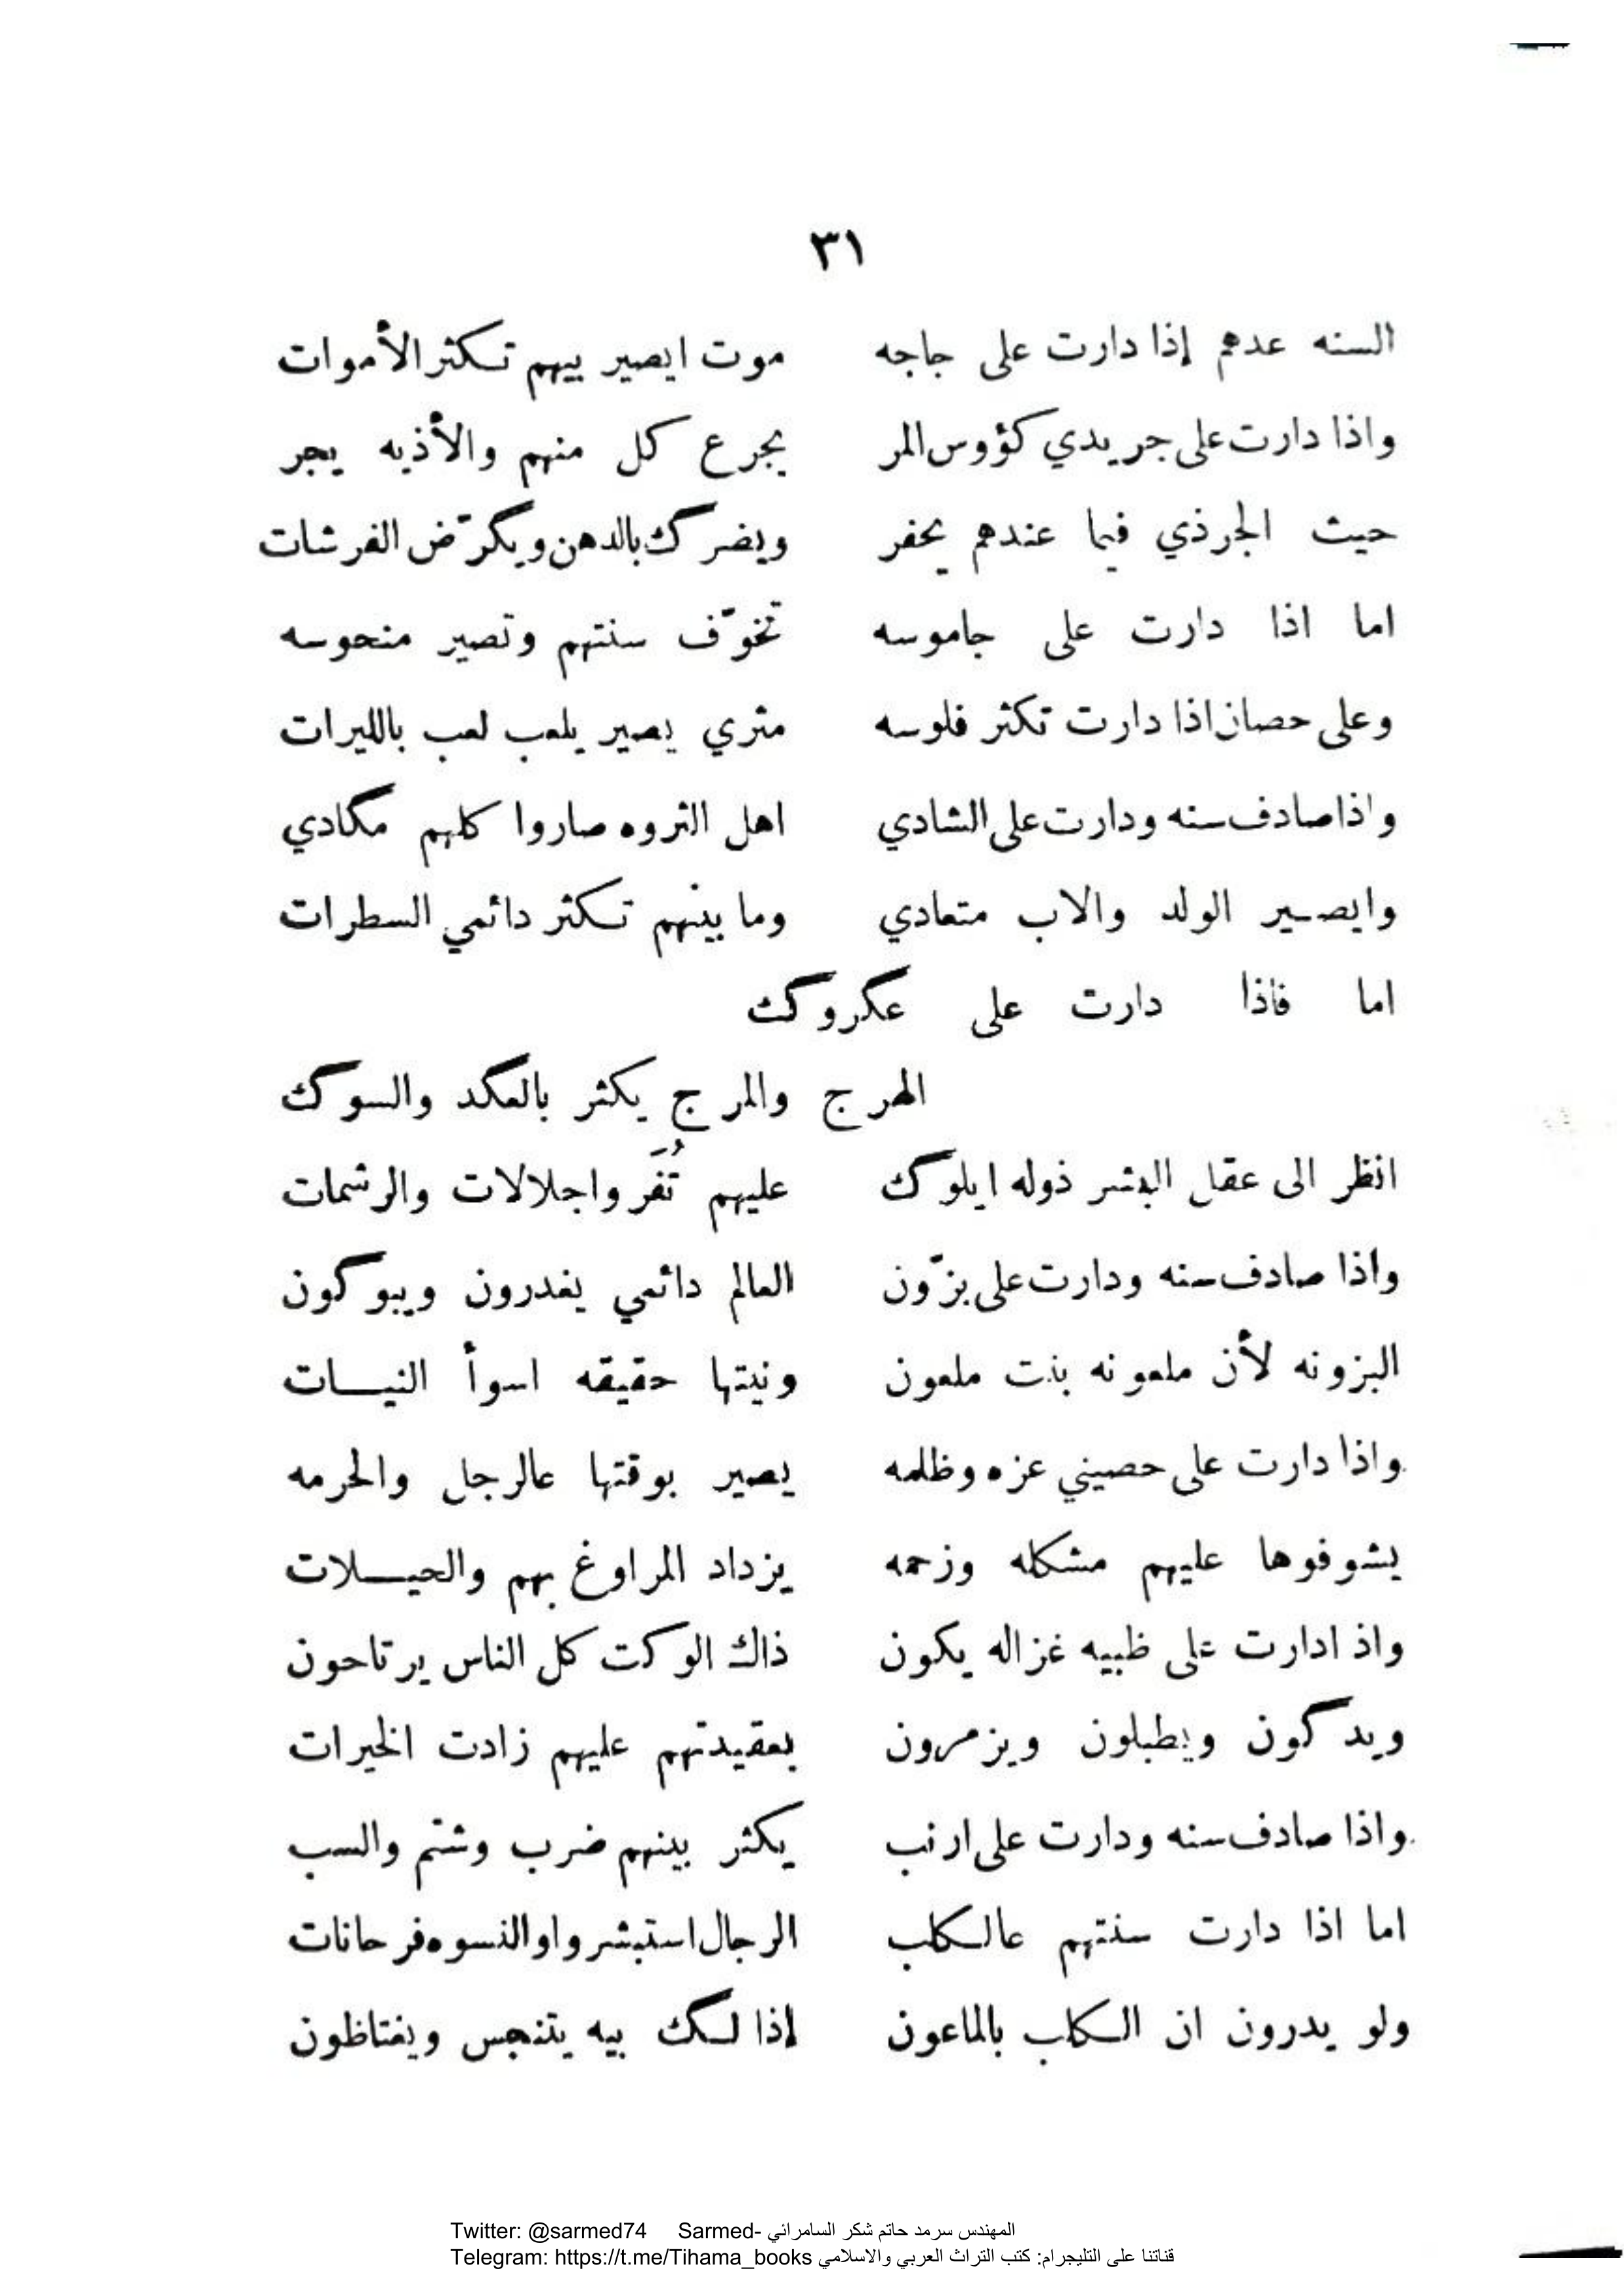 ٣١
السنه عدهم إذا دارت على جاجه موت ايصير بيهم تكثر الأموات
واذا دارت على جريدي كؤوس المر يجرع كل منهم والأذيه يجر
حيث الجرذي فيما عندهم يحفر ويضرگ بالدهن ويگرّض الفرشات
اما اذا دارت على جاموسه تخوّف سنتهم وتصير منحوسه
وعلى حصان اذا دارت تكثر فلوسه مثري يصير يلعب لعب بالليرات
واذا صادف سنه ودارت على الشادي اهل الثروه صاروا كلهم مگادي
وايصير الولد والاب متعادي وما بينهم تكثر دائمي السطرات
اما فاذا دارت على عگروگ
الهرج والمرج يكثر بالعگد والسوگ
انظر الى عقل البشر ذوله ايلوگ عليهم تُفَر واجلالات والرشمات
واذا صادف سنه ودارت على بزّون العالم دائمي يغدرون ويبوگون
البزونه لأن ملعونه بنت ملعون ونيتها حقيقه اسوأ النيات
واذا دارت على حصيني عزه وظلمه يصير بوقتها عالرجل والحرمه
يشوفوها عليهم مشكله وزحمه يزداد المراوغ بهم والحيلات
واذ ادارت على ظبيه غزاله يكون ذاك الوكت كل الناس يرتاحون
ويدگون ويطبلون ويزمرون بعقيدتهم عليهم زادت الخيرات
واذا صادف سنه ودارت على ارنب يكثر بينهم ضرب وشتم والسب
اما اذا دارت سنتهم عالكلب الرجال استبشروا والنسوه فرحانات
ولو يدرون ان الكلب بالماعون إذا لگ بيه يتنجس ويغتاظون
Twitter: @sarmed74 Sarmed- المهندس سرمد حاتم شكر السامرائي
Telegram: https://t.me/Tihama_books قناتنا على التليجرام: كتب التراث العربي والاسلامي